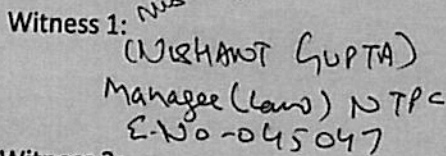 Witness 1:
(NISHANT GUPTA)
Manager (Law) NTPC
E.No-045047